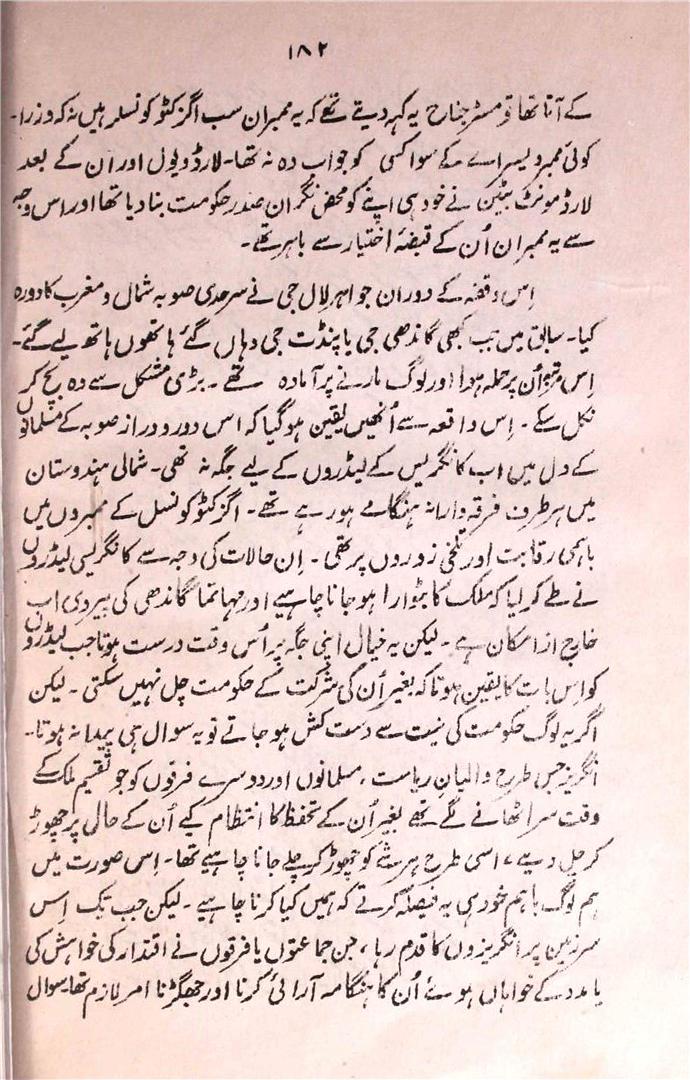 ۱۸۲
کے آتا تھا تو مسٹر جناح یہ کہہ دیتے تھے کہ یہ ممبران سب اگزکٹو کونسلر ہیں نہ کہ وزرا۔
کوئی ممبر ویسراے کے سوا کسی کو جواب دہ نہ تھا۔ لارڈ ویول اور ان کے بعد
لارڈ مونٹ بیٹن نے خود ہی اپنے کو محض نگران صدر حکومت بنا دیا تھا اور اس وجہ
سے یہ ممبران اُن کے قبضۂ اختیار سے باہر تھے۔
اِس وقفہ کے دوران جواہر لال جی نے سرحدی صوبہ شمال و مغرب کا دورہ
کیا۔ سابق میں جب کبھی گاندھی جی یا پنڈت جی وہاں گئے ہاتھوں ہاتھ لیے گئے۔
اِس مرتبہ اُن پر حملہ ہوا اور لوگ مارنے پر آمادہ تھے۔ بڑی مشکل سے وہ بچ کر
نکل سکے۔ اِس واقعہ سے اُنھیں یقین ہو گیا کہ اس دور و دراز صوبہ کے مسلمانوں
کے دل میں اب کانگریس کے لیڈروں کے لیے جگہ نہ تھی۔ شمالی ہندوستان
میں ہر طرف فرقہ وارانہ ہنگامے ہو رہے تھے۔ اگزکٹو کونسل کے ممبروں میں
باہمی رقابت اور تلخی زوروں پر تھی۔ اِن حالات کی وجہ سے کانگریسی لیڈروں
نے طے کر لیا کہ ملک کا بٹوارا ہو جانا چاہیے اور مہاتما گاندھی کی پیروی اب
خارج از امکان ہے۔ لیکن یہ خیال اپنی جگہ پر اُس وقت درست ہوتا جب لیڈروں
کو اِس بات کا یقین ہوتا کہ بغیر اُن کی شرکت کے حکومت چل نہیں سکتی۔ لیکن
اگر یہ لوگ حکومت کی نیت سے دست کش ہو جاتے تو یہ سوال ہی پیدا نہ ہوتا۔
انگریز جس طرح والیانِ ریاست، مسلمانوں اور دوسرے فرقوں کو جو تقسیم ملک کے
وقت سر اٹھانے لگے تھے بغیر اُن کے تحفظ کا انتظام کیے اُن کے حال پر چھوڑ
کر چل دیے، اسی طرح ہر شے کو چھوڑ کر چلے جانا چاہیے تھا۔ اِس صورت میں
ہم لوگ باہم خود ہی یہ فیصلہ کرتے کہ ہمیں کیا کرنا چاہیے۔ لیکن جب تک اِس
سرزمین پر انگریزوں کا قدم رہا، جن جماعتوں یا فرقوں نے اقتدار کی خواہش کی
یا مدد کے خواہاں ہوئے اُن کا ہنگامہ آرائی کرنا اور جھگڑنا امر لازم تھا۔ سوال